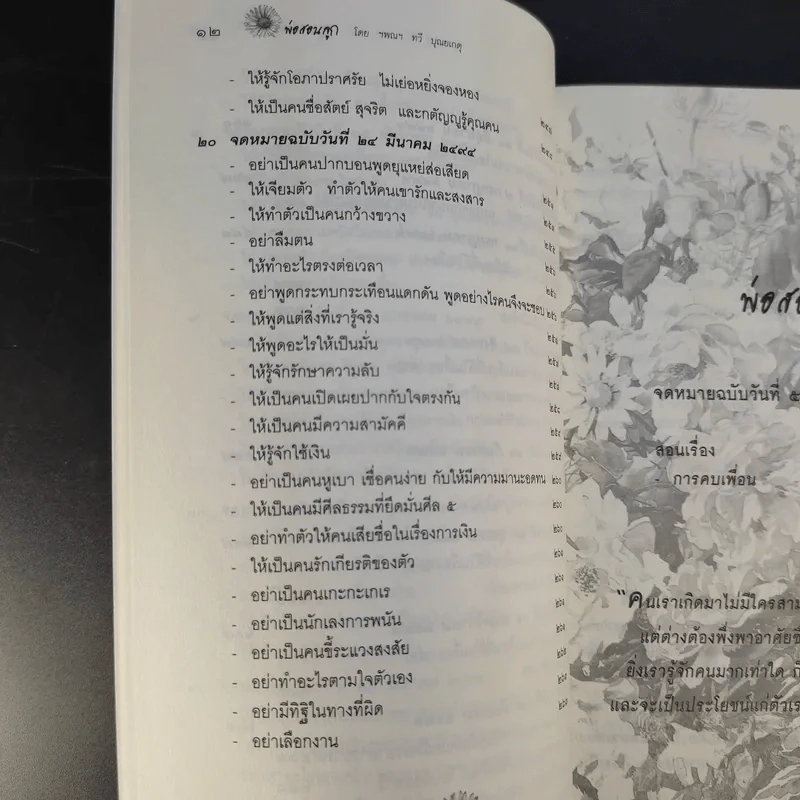 ๑๒ พ่อสอนลูก โดย ฯพณฯ ทวี บุณยเกตุ
- ให้รู้จักโอภาปราศรัย ไม่เย่อหยิ่งจองหอง
- ให้เป็นคนซื่อสัตย์ สุจริต และกตัญญูรู้คุณคน
๒๐ จดหมายฉบับวันที่ ๒๔ มีนาคม ๒๔๙๔
- อย่าเป็นคนปากบอนพูดยุแหย่ส่อเสียด
- ให้เจียมตัว ทำตัวให้คนเขารักและสงสาร
- ให้ทำตัวเป็นคนกว้างขวาง
- อย่าลืมตน
- ให้ทำอะไรตรงต่อเวลา
- อย่าพูดกระทบกระเทือนแดกดัน พูดอย่างไรคนจึงจะชอบ
- ให้พูดแต่สิ่งที่เรารู้จริง
- ให้พูดอะไรให้เป็นมั่น
- ให้รู้จักรักษาความลับ
- ให้เป็นคนเปิดเผยปากกับใจตรงกัน
- ให้เป็นคนมีความสามัคคี
- ให้รู้จักใช้เงิน
- อย่าเป็นคนหูเบา เชื่อคนง่าย กับให้มีความมานะอดทน ๒๖๐
- ให้เป็นคนมีศีลธรรมที่ยึดมั่นศีล ๕ ๒๖๐
- อย่าทำตัวให้คนเสียชื่อในเรื่องการเงิน
- ให้เป็นคนรักเกียรติของตัว
- อย่าเป็นคนเกะกะเกเร
- อย่าเป็นนักเลงการพนัน
- อย่าเป็นคนขี้ระแวงสงสัย
- อย่าทำอะไรตามใจตัวเอง
- อย่ามีทิฐิในทางที่ผิด
- อย่าเลือกงาน
พ่อสอ
จดหมายฉบับวันที่ ๕
สอนเรื่อง
- การคบเพื่อน
"คนเราเกิดมาไม่มีใครสาม
แต่ต่างต้องพึ่งพาอาศัยซึ
ยิ่งเรารู้จักคนมากเท่าใด ก็
และจะเป็นประโยชน์แก่ตัวเร